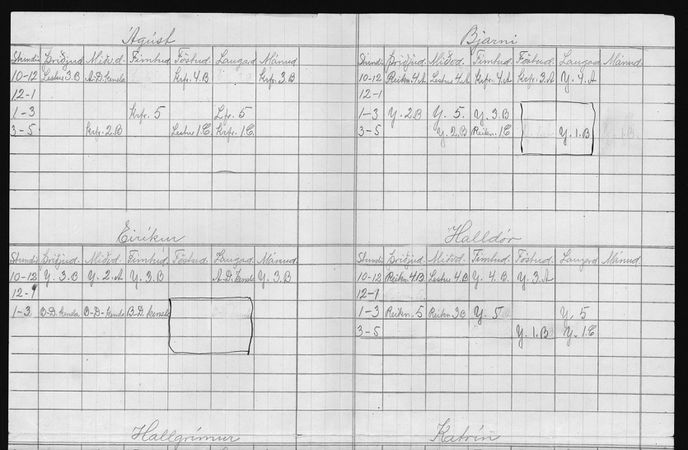 Ágúst
Stundir Þriðjud. Miðvd. Fimtud. Föstud. Laugard. Mánud
10-12 Lestur 3.B A-D. kensla Krfr. 4.B Krfr. 3.B
12-1
1-3 Krfr. 5 Lfr. 5
3-5 Krfr. 2.B Lestur 1.C. Krfr. 1.C.
Bjarni
Stundir Þriðjud. Miðvd. Fimtud. Föstud. Laugard Mánud.
10-12 Reikn. 4.A Lestur 4.A Krfr. 4.A Krfr. 3.A Y. 4.A
12-1
1-3 Y. 2.B Y. 5 Y. 3.B
3-5 Y. 2.B Reikn. 1.C Y. 1.B 1.B
Eiríkur
Stundir Þriðjud. Miðvd. Fimtud. Föstud. Laugard. Mánud.
10-12 Y. 3.B Y. 2.A Y. 3.B A-D. kensla Y. 3.B
12-1
1-3 B-D. kensla B-D- kensla B.D. kensla
Halldór
Stundir Þriðjud. Miðvd. Fimtud. Föstud. Laugard Mánud.
10-12 Reikn. 4.B Lestur 4.B Y. 4.B. Y. 3.A
12-1
1-3 Reikn. 5 Reikn. 3.B Y. 5 Y. 5
3-5 Y. 1.B Y. 1.C
Hallgrímur
Katrín